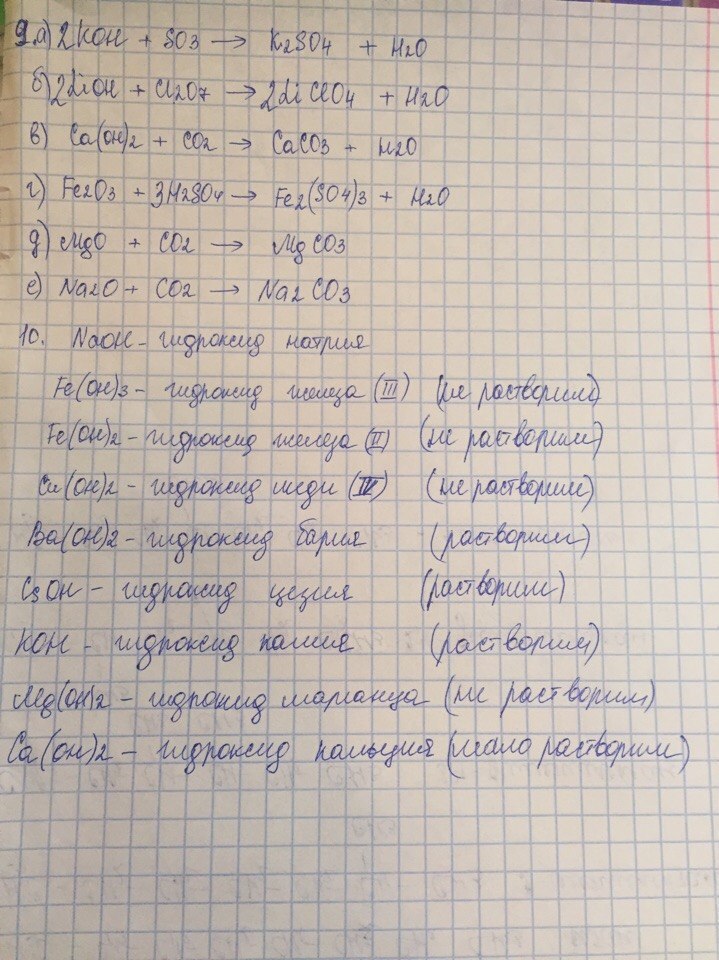 9.а) 2KOH + SO3 → K2SO4 + H2O
б) 2LiOH + Cl2O7 → 2LiClO4 + H2O
в) Ca(OH)2 + CO2 → CaCO3 + H2O
г) Fe2O3 + 3H2SO4 → Fe2(SO4)3 + H2O
д) MgO + CO2 → MgCO3
е) Na2O + CO2 → Na2CO3
10. NaOH - гидроксид натрия
Fe(OH)3 - гидроксид железа (III) (не растворим)
Fe(OH)2 - гидроксид железа (II) (не растворим)
Cu(OH)2 - гидроксид меди (не растворим)
Ba(OH)2 - гидроксид бария (растворим)
CsOH - гидроксид цезия (растворим)
KOH - гидроксид калия (растворим)
Mg(OH)2 - гидроксид марганца (не растворим)
Ca(OH)2 - гидроксид кальция (мало растворим)